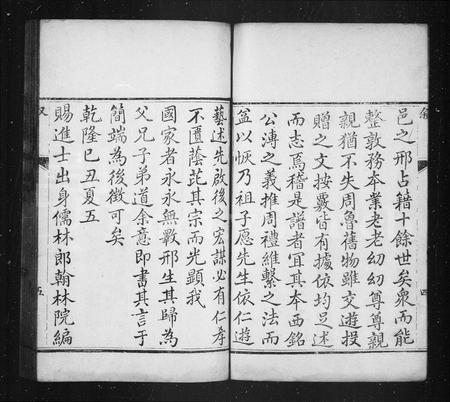 邑之邢占籍十餘世矣衆而能
整敦務本業老老幼幼尊尊親
親猶不失周魯舊物雖交遊投
贈之文按覈皆有據依均足述
而志焉稽是譜者宜其本西銘
公溥之義推周禮維繫之法而
益以恢乃祖子愿先生依仁遊
藝述先啟後之宏謀必有仁孝
不匱蔭芘其宗而先顯我
國家者永永無斁邢生其歸為
父兄子弟道余意即書其言于
簡端為後徵可矣
乾隆己丑夏五
賜進士出身儒林郎翰林院編
五